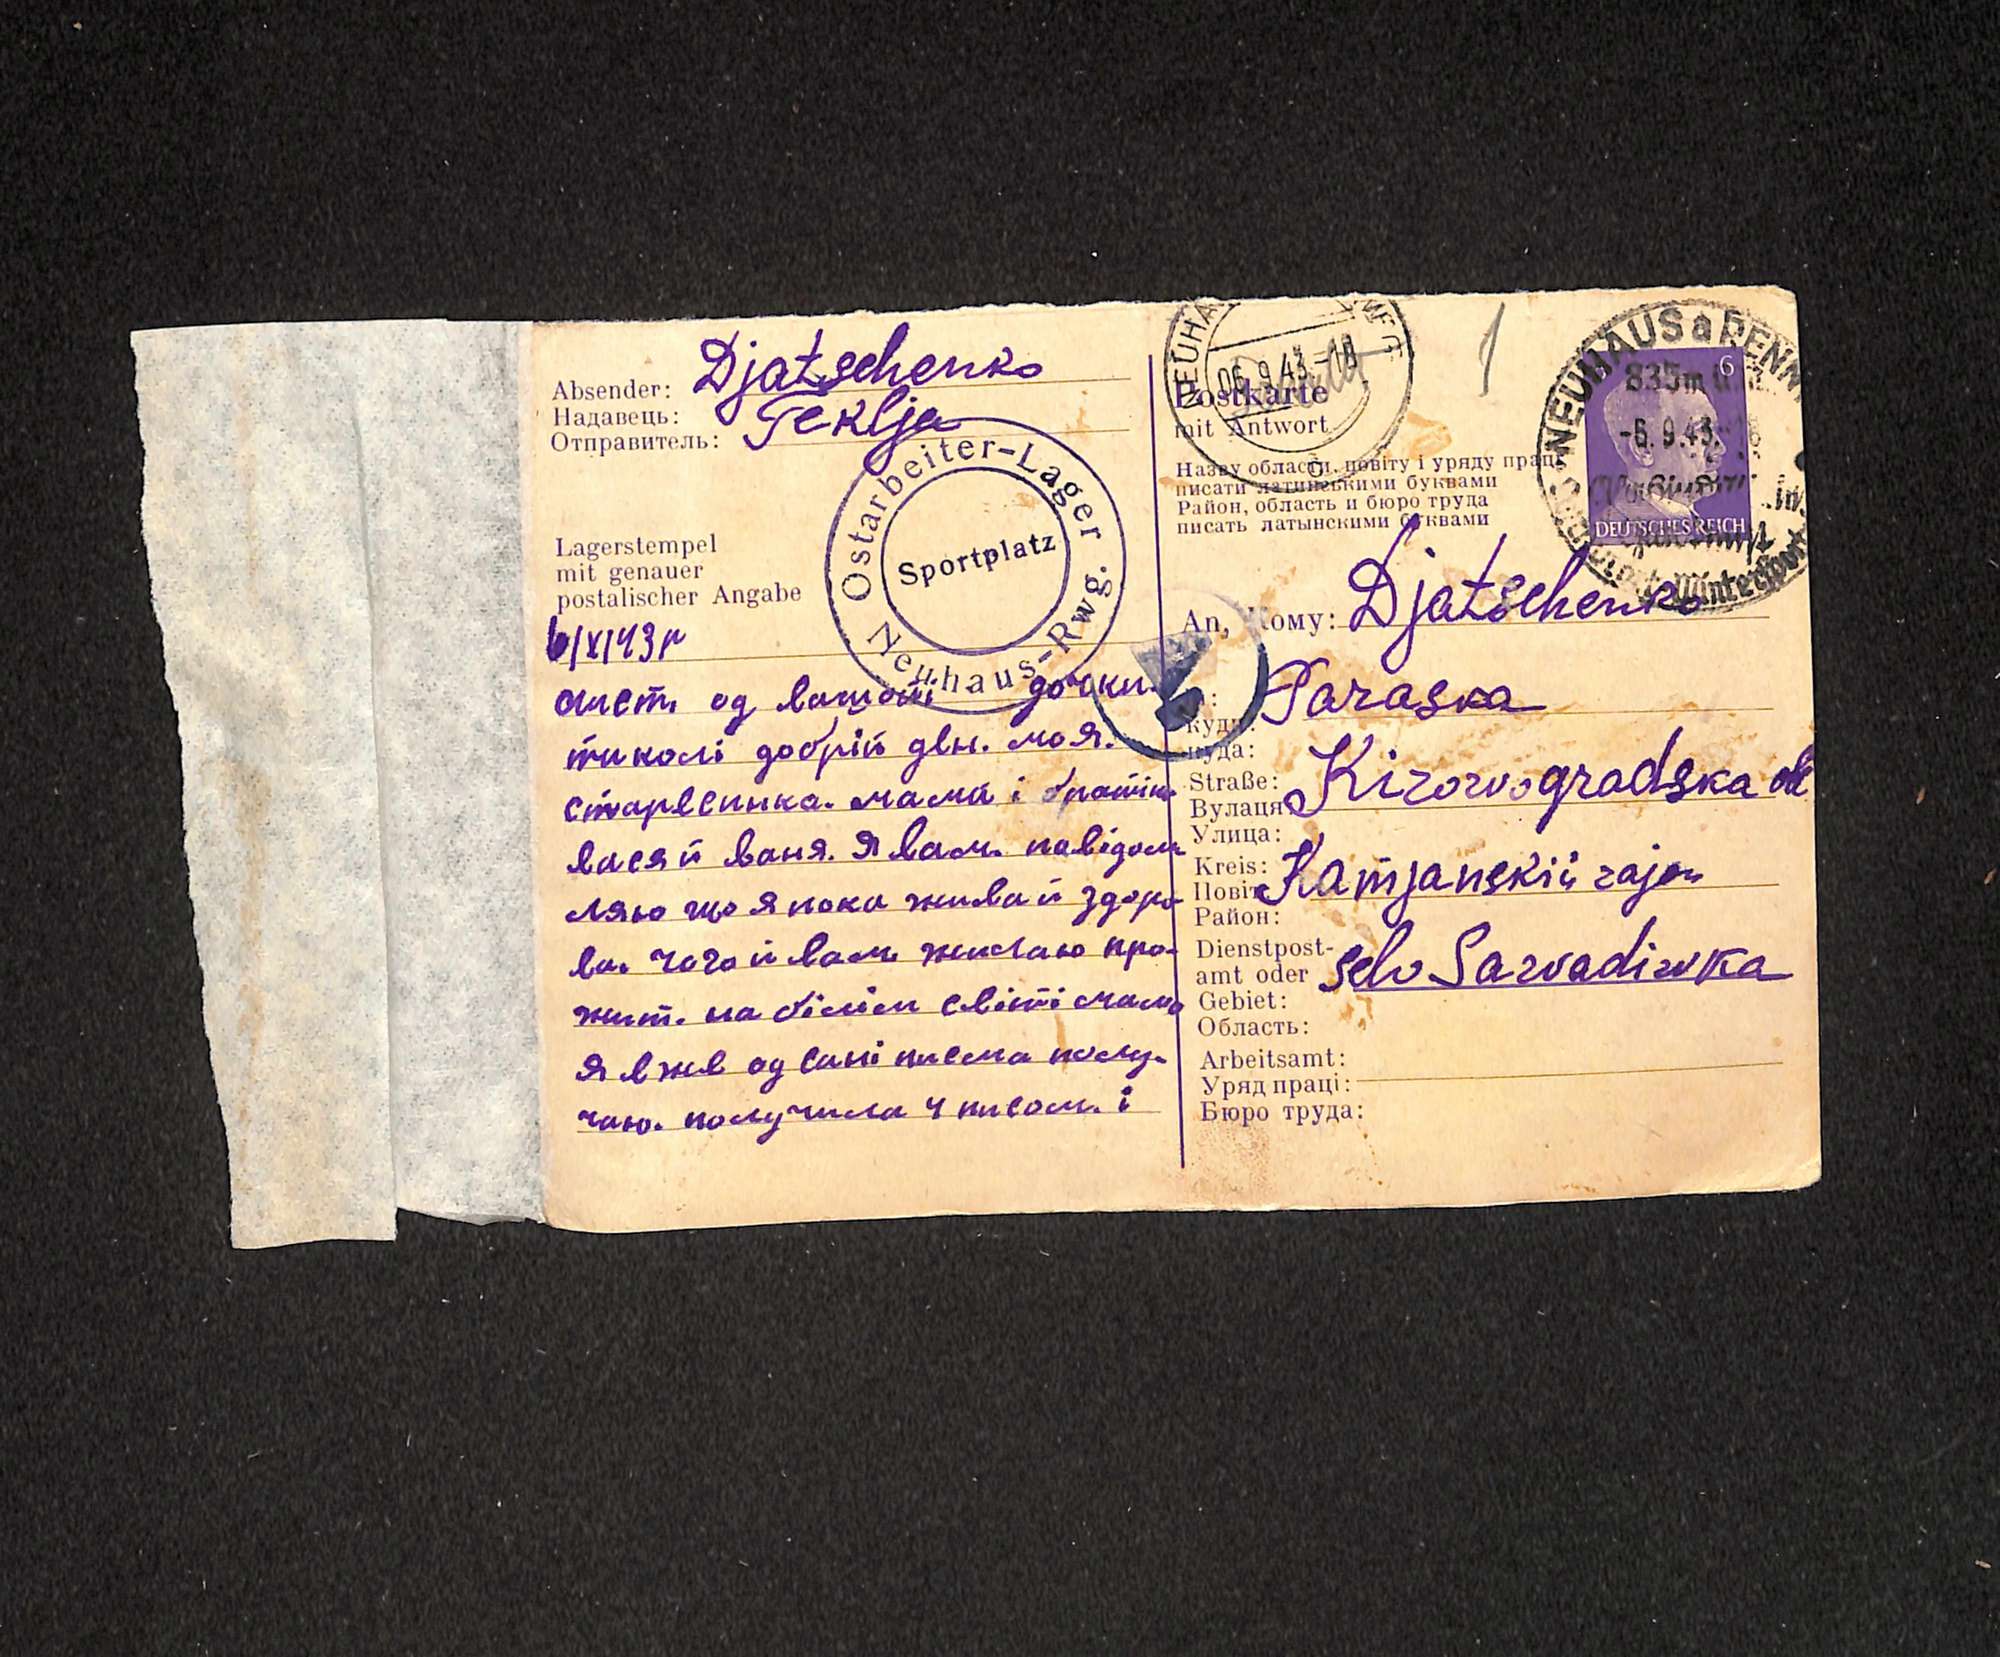 Absender: Djatschenko
Надавець: Teklja
Отправитель:
Ostarbeiter-Lager
Sportplatz
Neuhaus-Rwg.
Lagerstempel
mit genauer
postalischer Angabe
6/X/43р
лист. од вашої дочки.
теколі добрій дьн. моя.
старесинка. мама і братік
вася й ваня. Я вам. повідом
ляю що я пока жива й здоро
ва. чого й вам. желаю про-
жит. на білім світі мамо
я вже од сані писма полу-
чаю. получила 4 писом. і
NEUHA
06.9.43.-18
Postkarte
mit Antwort
Назву области, повіту і уряду праці
писати латинськими буквами
Район, область и бюро труда
писать латынскими буквами
NEUHAUS a RENN
835m ü
-6.9.43.-18
6
DEUTSCHES REICH
Wintersport
An, Кому: Djatschenko
Paraska
куди:
куда:
Straße: Kirowogradska obl
Вулиця
Улица:
Kreis: Kamjanskiй rajon
Повіт
Район:
Dienstpost-
amt oder selo Sawadiwka
Gebiet:
Область:
Arbeitsamt:
Уряд праці:
Бюро труда: